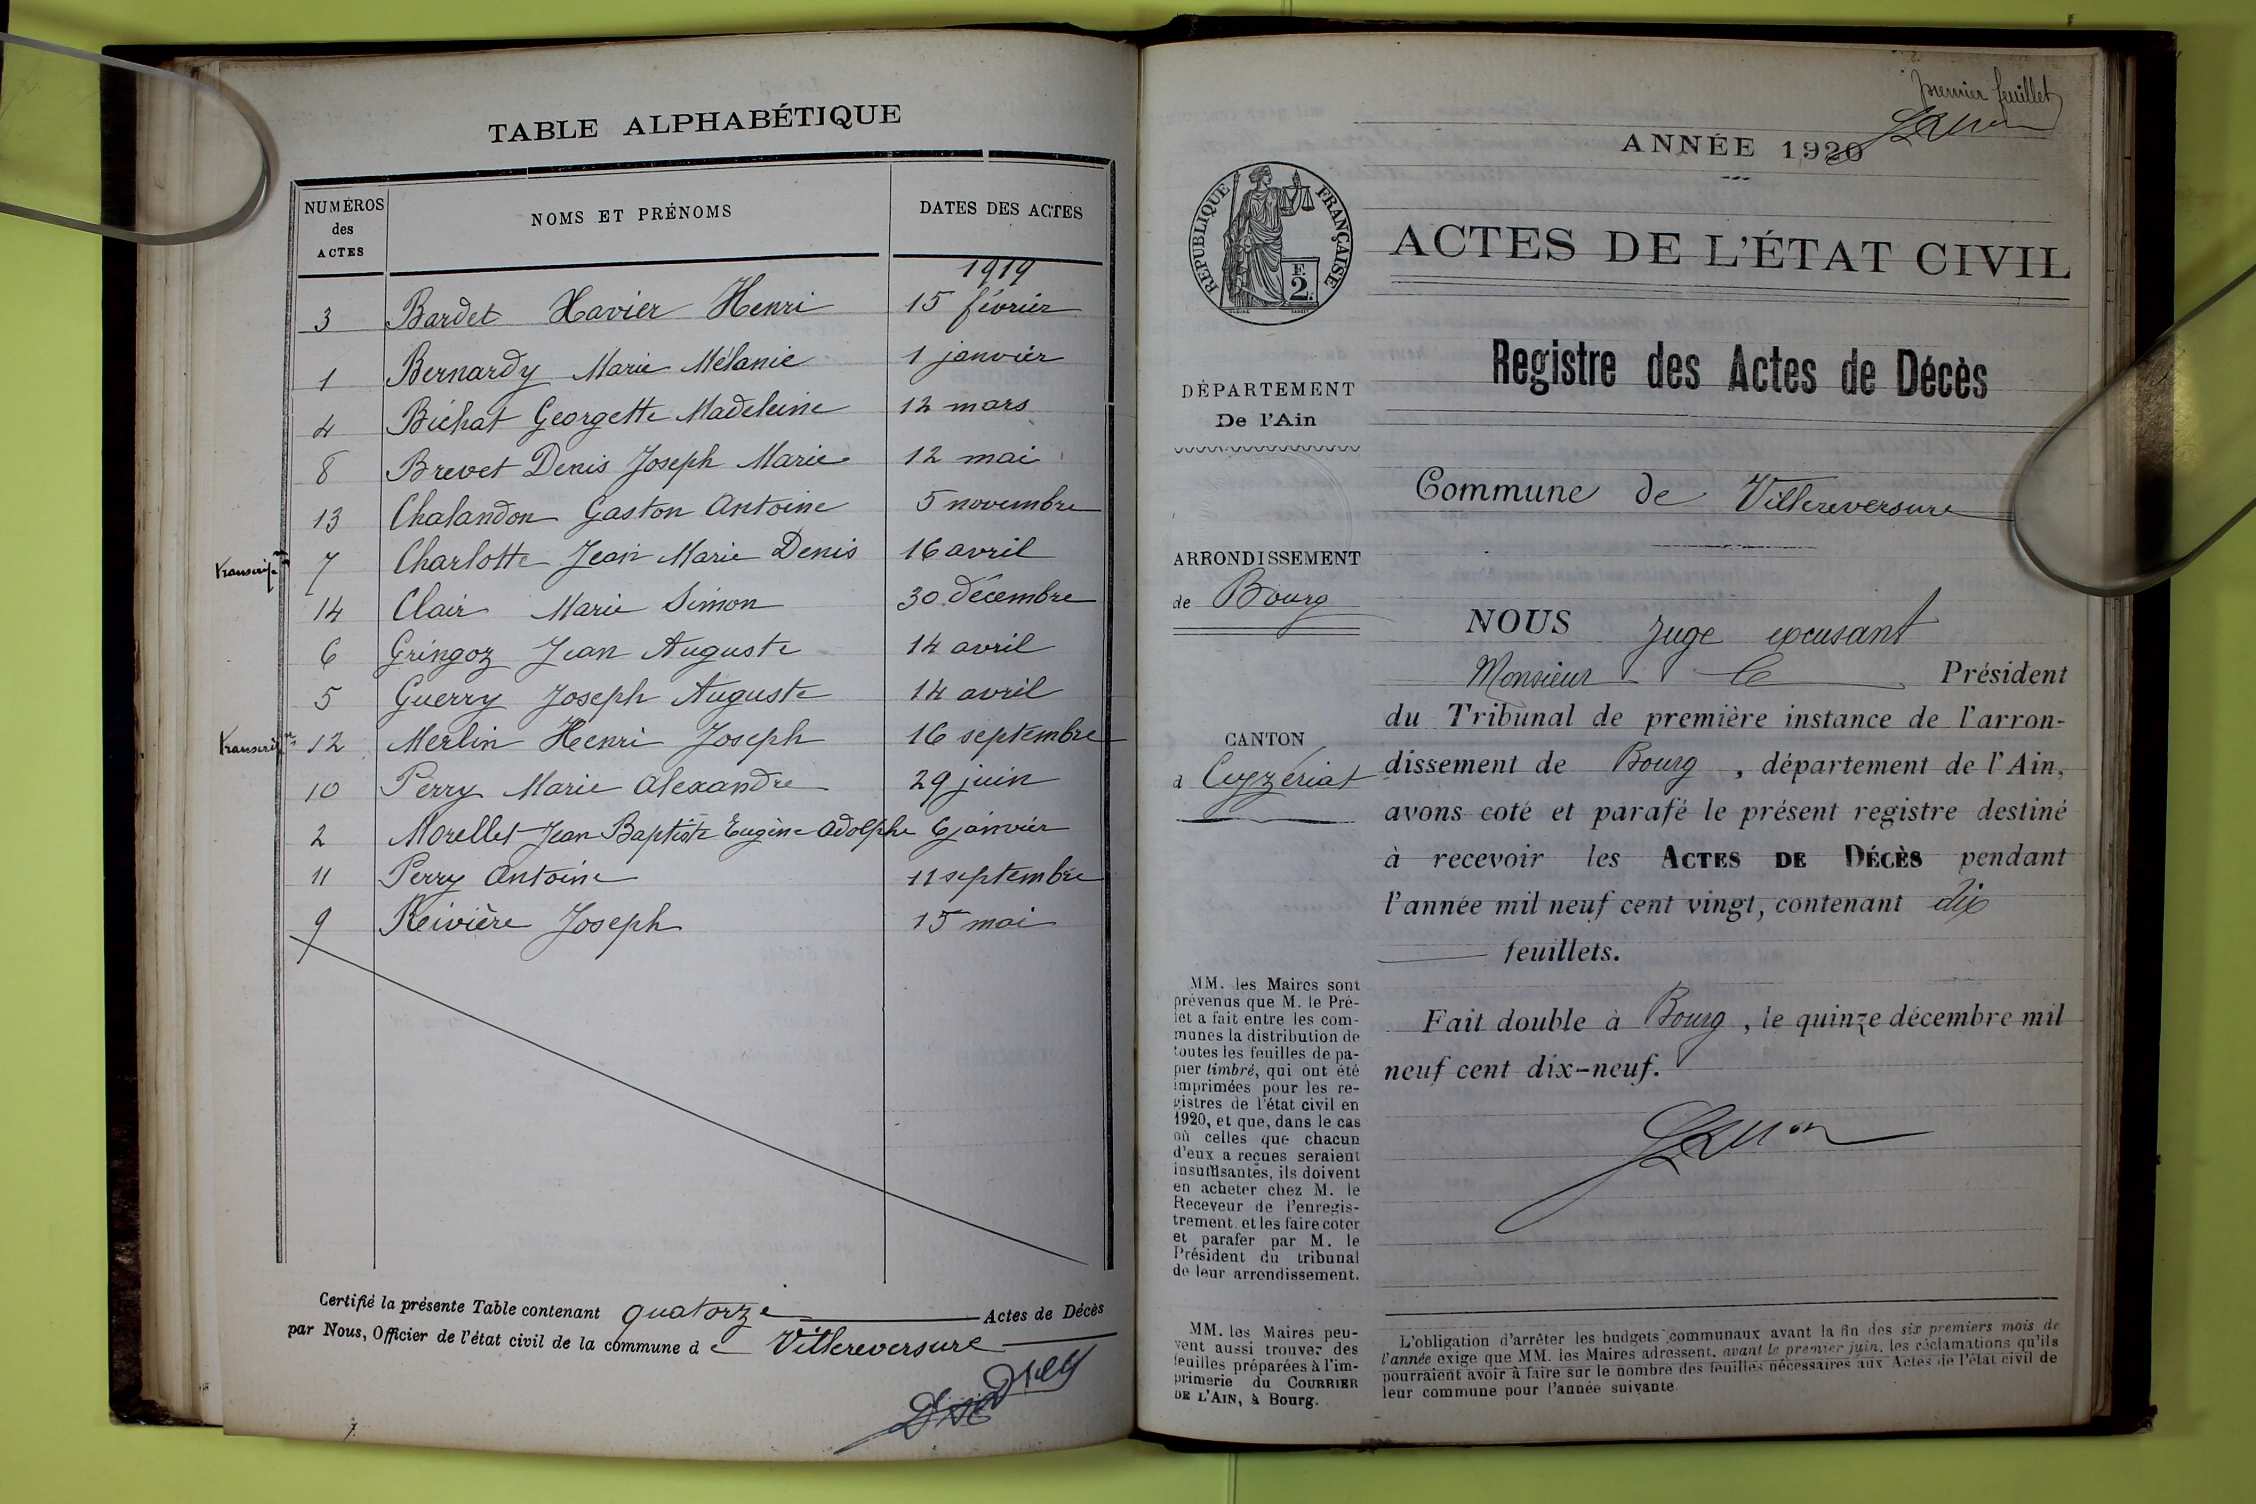 TABLE ALPHABÉTIQUE
NUMÉROS des ACTES NOMS ET PRÉNOMS DATES DES ACTES
1919
3 Bardet Xavier Henri 15 février
1 Bernardy Marie Mélanie 1 janvier
4 Bichat Georgette Madeleine 12 mars
8 Brevet Denis Joseph Marie 12 mai
13 Chalandon Gaston Antoine 5 novembre
transcrip.on 7 Charlotte Jean Marie Denis 16 avril
14 Clair Marie Simon 30 décembre
6 Gringoz Jean Auguste 14 avril
5 Guerry Joseph Auguste 14 avril
12 Merlin Henri Joseph 16 septembre
10 Perry Marie Alexandre 29 juin
2 Morellet Jean Baptiste Eugène Adolphe 6 janvier
11 Perry Antoine 11 septembre
9 Reivière Joseph 15 mai
Certifié la présente Table contenant quatorze Actes de Décès
par Nous, Officier de l'état civil de la commune de Villereversure
premier feuillet
ANNÉE 1920
RÉPUBLIQUE FRANÇAISE
F. 2
ACTES DE L'ÉTAT CIVIL
Registre des Actes de Décès
DÉPARTEMENT
De l'Ain
Commune de Villereversure
ARRONDISSEMENT
de Bourg
CANTON
d Ceyzériat
MM. les Maires sont
prévenus que M. le Pré-
fet a fait entre les com-
munes la distribution de
toutes les feuilles de pa-
pier timbré, qui ont été
imprimées pour les re-
gistres de l'état civil en
1920, et que, dans le cas
où celles que chacun
d'eux a reçues seraient
insuffisantes, ils doivent
en acheter chez M. le
Receveur de l'enregis-
trement, et les faire coter
et parafer par M. le
Président du tribunal
de leur arrondissement.
MM. les Maires peu-
vent aussi trouver des
feuilles préparées à l'im-
primerie du COURRIER
DE L'AIN, à Bourg.
NOUS Juge excusant
Monsieur le Président
du Tribunal de première instance de l'arron-
dissement de Bourg, département de l'Ain,
avons coté et parafé le présent registre destiné
à recevoir les ACTES DE DÉCÈS pendant
l'année mil neuf cent vingt, contenant dix
feuillets.
Fait double à Bourg, le quinze décembre mil
neuf cent dix-neuf.
L'obligation d'arrêter les budgets communaux avant la fin des six premiers mois de
l'année exige que MM. les Maires adressent, avant le premier juin, les réclamations qu'ils
pourraient avoir à faire sur le nombre des feuilles nécessaires aux Actes de l'état civil de
leur commune pour l'année suivante